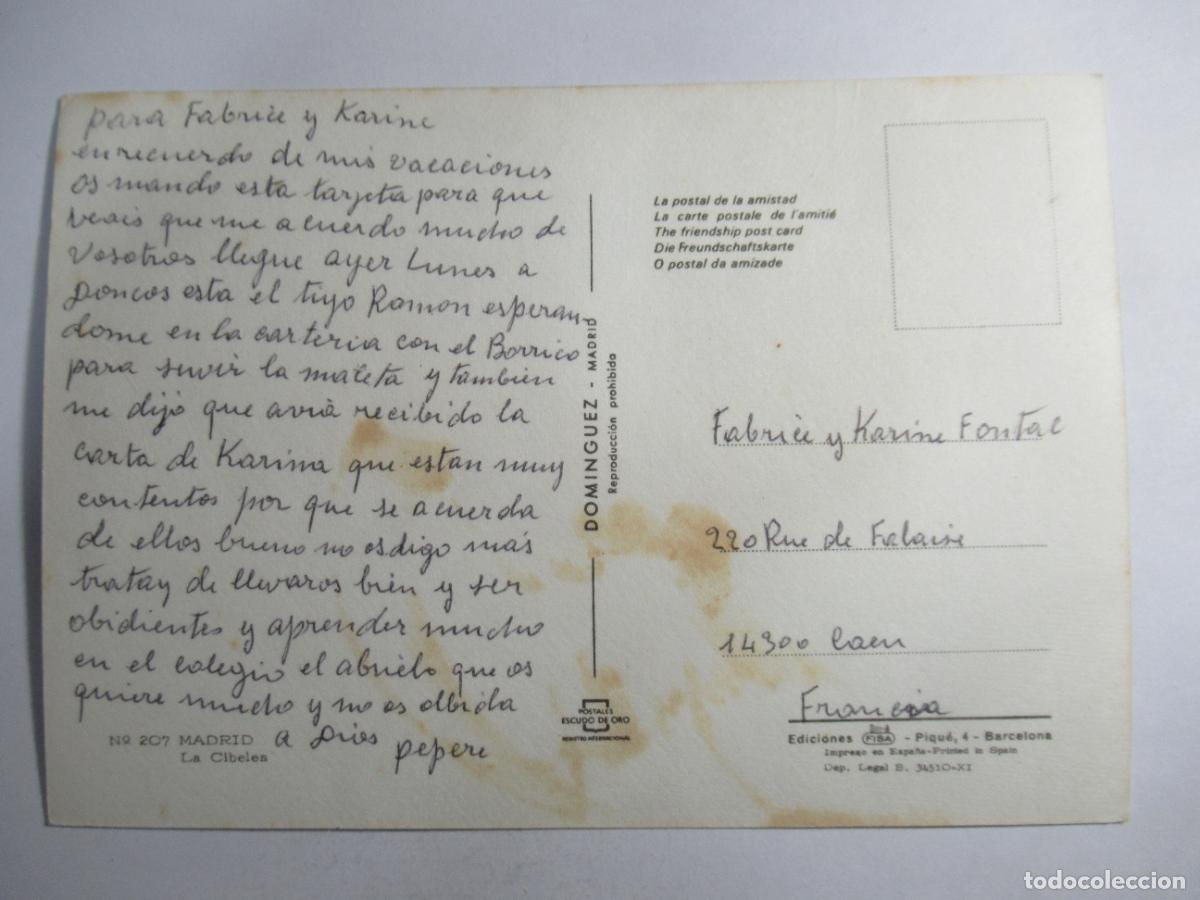 para Fabrice y Karine
en recuerdo de mis vacaciones
os mando esta tarjeta para que
veais que me acuerdo mucho de
vosotros llegue ayer Lunes a
Doncos esta el tiyo Ramon esperan
dome en la carteria con el Borrico
para suvir la maleta y tambien
me dijo que avria recibido la
carta de Karina que estan muy
contentos por que se acuerda
de ellos bueno no os digo más
tratay de llevaros bien y ser
obidientes y aprender mucho
en el colegio el abuelo que os
quiere mucho y no os olbida
a Dios
pepere
Nº 207 MADRID
La Cibeles
DOMINGUEZ - MADRID
Reproducción prohibida
POSTALES
ESCUDO DE ORO
REGISTRO INTERNACIONAL
La postal de la amistad
La carte postale de l'amitié
The friendship post card
Die Freundschaftskarte
O postal da amizade
Fabrice y Karine Fontal
220 Rue de Falaise
14300 Caen
Francia
Ediciones FISA - Piqué, 4 - Barcelona
Impreso en España-Printed in Spain
Dep. Legal B. 34510-XI
todocoleccion